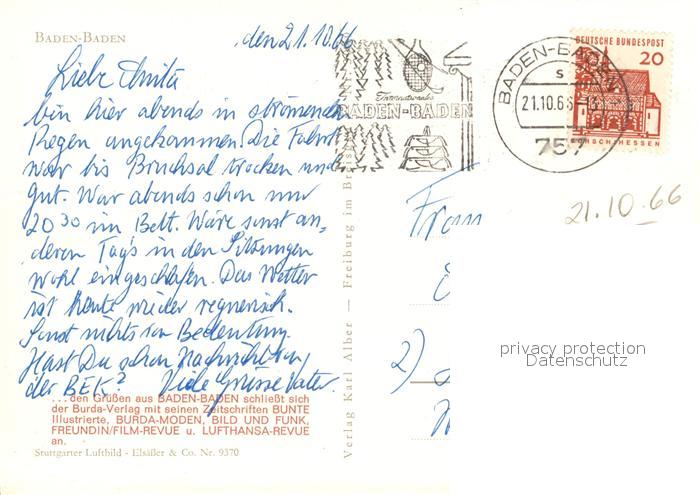 BADEN-BADEN
den 21.10.66
Liebe Anita
bin hier abends in strömenden
Regen angekommen. Die Fahrt
war bis Bruchsal trocken und
gut. War abends schon um
20 30 im Bett. Wäre sonst an-
deren Tags in den Sitzungen
wohl eingeschlafen. Das Wetter
ist heute wieder regnerisch.
Sonst nichts von Bedeutung.
Hast Du schon Nachricht von
der BEK? Viele Grüsse Vater.
...den Grüßen aus BADEN-BADEN schließt sich
der Burda-Verlag mit seinen Zeitschriften BUNTE
Illustrierte, BURDA-MODEN, BILD UND FUNK,
FREUNDIN/FILM-REVUE u. LUFTHANSA-REVUE
an.
Stuttgarter Luftbild - Elsäßer & Co. Nr. 9370
Verlag Karl Alber — Freiburg im Breis
Internationales
BADEN-BADEN
BADEN-BADEN
s
21.10.66
757
DEUTSCHE BUNDESPOST
20
LORSCH/HESSEN
21.10.66
2)
privacy protection
Datenschutz